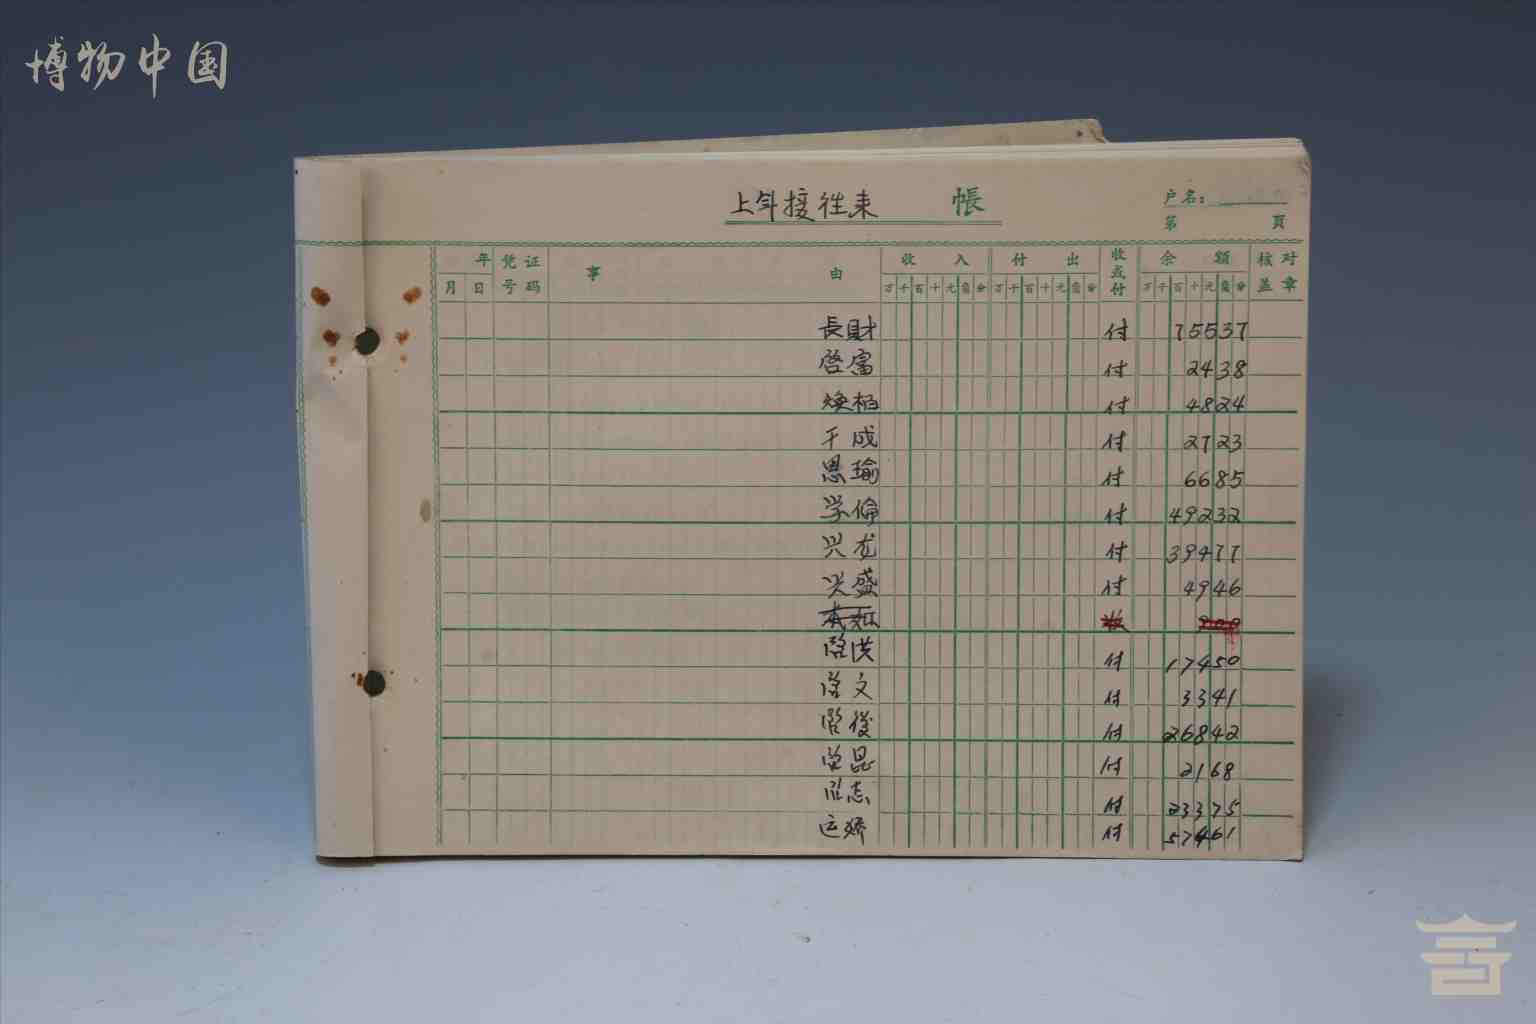 博物中国
上年接往来 帳
户名:
第 頁
年 凭证 事 由 收入 付出 收或付 余额 核对
月 日 号码 万千百十元角分 万千百十元角分 万千百十元角分 盖章
長財 付 75537
啓富 付 2438
焕柏 付 4824
干成 付 2723
恩瑜 付 6685
学倫 付 49232
兴龙 付 39477
兴盛 付 4946
啓洪 付 17450
啓文 付 3341
啓後 付 26842
啓昆 付 2168
志 付 23375
运娇 付 57461